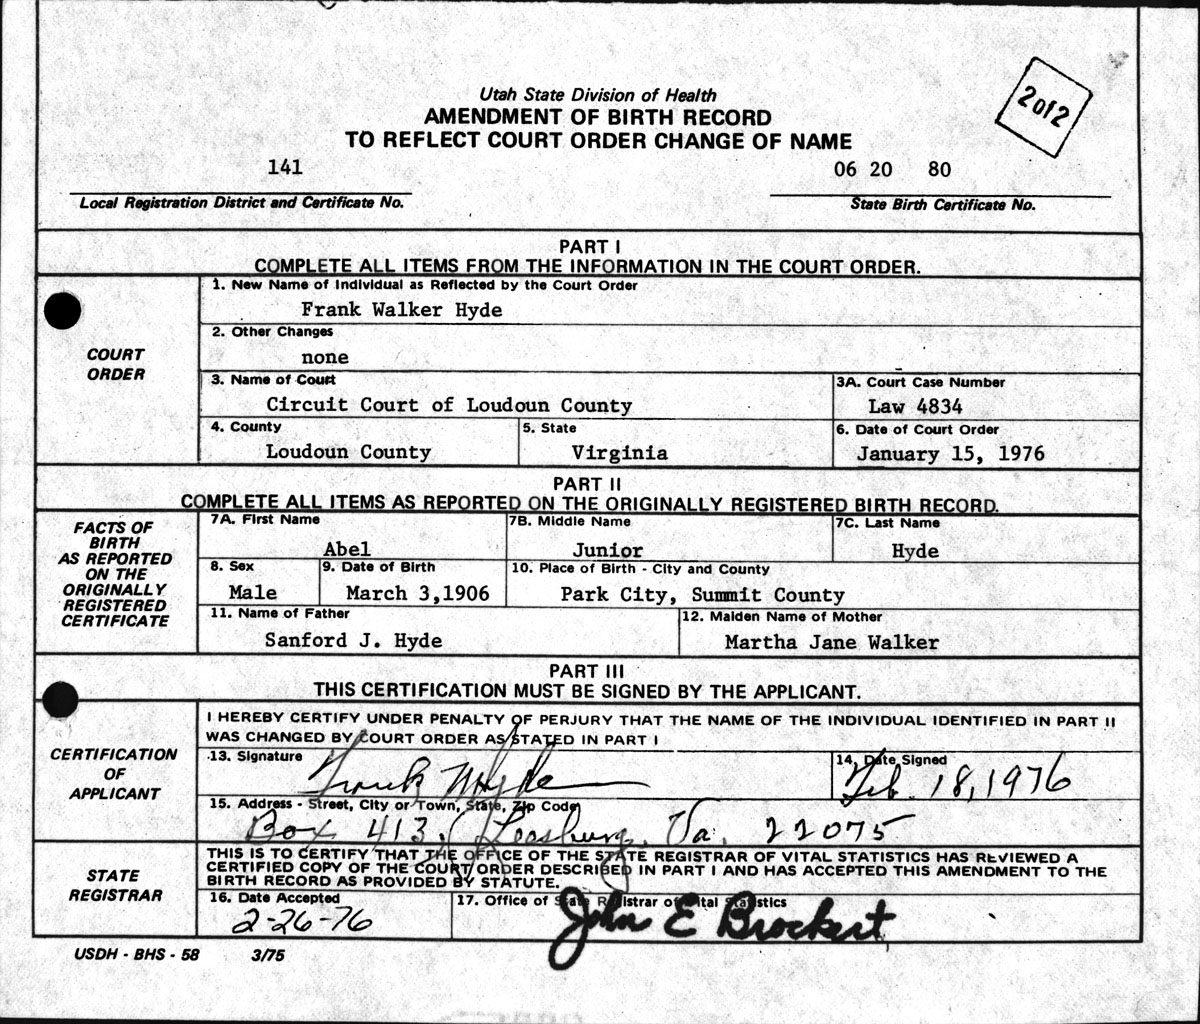 Utah State Division of Health
AMENDMENT OF BIRTH RECORD
TO REFLECT COURT ORDER CHANGE OF NAME
2 of 2
141
06 20 80
Local Registration District and Certificate No.
State Birth Certificate No.
PART I
COMPLETE ALL ITEMS FROM THE INFORMATION IN THE COURT ORDER.
COURT ORDER
1. New Name of Individual as Reflected by the Court Order
Frank Walker Hyde
2. Other Changes
none
3. Name of Court
Circuit Court of Loudoun County
3A. Court Case Number
Law 4834
4. County
Loudoun County
5. State
Virginia
6. Date of Court Order
January 15, 1976
PART II
COMPLETE ALL ITEMS AS REPORTED ON THE ORIGINALLY REGISTERED BIRTH RECORD.
FACTS OF
BIRTH
AS REPORTED
ON THE
ORIGINALLY
REGISTERED
CERTIFICATE
7A. First Name
Abel
7B. Middle Name
Junior
7C. Last Name
Hyde
8. Sex
Male
9. Date of Birth
March 3,1906
10. Place of Birth - City and County
Park City, Summit County
11. Name of Father
Sanford J. Hyde
12. Maiden Name of Mother
Martha Jane Walker
PART III
THIS CERTIFICATION MUST BE SIGNED BY THE APPLICANT.
CERTIFICATION
OF
APPLICANT
I HEREBY CERTIFY UNDER PENALTY OF PERJURY THAT THE NAME OF THE INDIVIDUAL IDENTIFIED IN PART II
WAS CHANGED BY COURT ORDER AS STATED IN PART I
13. Signature
Frank W Hyde
14. Date Signed
Feb. 18, 1976
15. Address - Street, City or Town, State, Zip Code
Box 413, Leesburg, Va. 22075
STATE
REGISTRAR
THIS IS TO CERTIFY THAT THE OFFICE OF THE STATE REGISTRAR OF VITAL STATISTICS HAS REVIEWED A
CERTIFIED COPY OF THE COURT ORDER DESCRIBED IN PART I AND HAS ACCEPTED THIS AMENDMENT TO THE
BIRTH RECORD AS PROVIDED BY STATUTE.
16. Date Accepted
2-26-76
17. Office of State Registrar of Vital Statistics
John E Brockert
USDH - BHS - 58 3/75